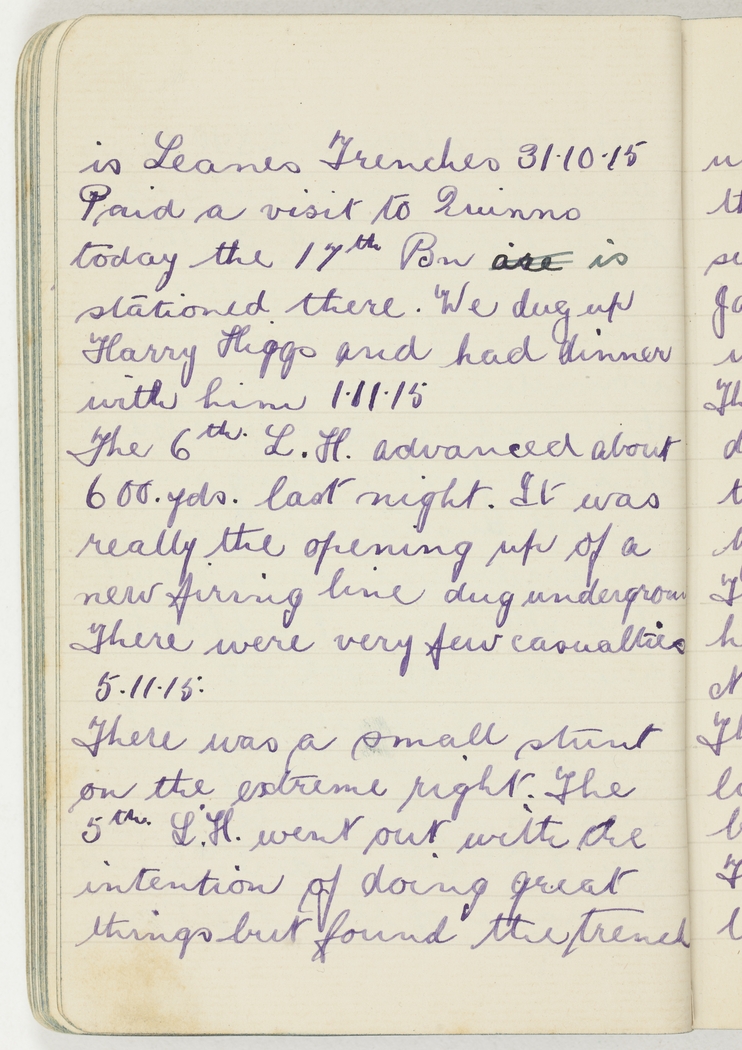 is Leanes Trenches 31.10.15
Paid a visit to Quinns
today the 17th Bn are is
stationed there. We dug up
Harry Higgs and had dinner
with him 1.11.15
The 6th. L.H. advanced about
600.yds. last night. It was
really the opening up of a
new firing line dug undergroun
There were very few casualties
5.11.15.
There was a small stunt
on the extreme right. The
5th. L.H. went out with the
intention of doing great
things but found the trench